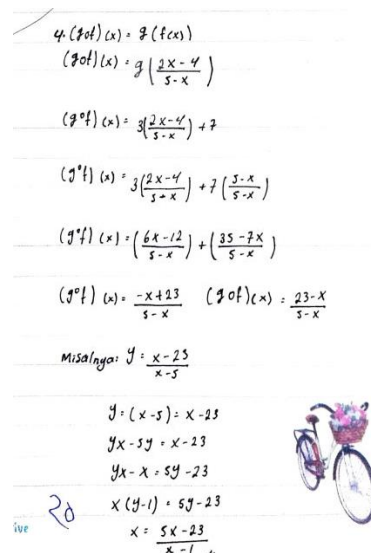 4. (gof) (x) = g (f(x))
(gof) (x) = g ( (2x-4)/(5-x) )
(g°f) (x) = 3( (2x-4)/(5-x) ) + 7
(g°f) (x) = 3( (2x-4)/(5+x) ) + 7 ( (5-x)/(5-x) )
(g°f) (x) = ( (6x-12)/(5-x) ) + ( (35-7x)/(5-x) )
(g°f) (x) = (-x+23)/(5-x) (gof)(x) = (23-x)/(5-x)
Misalnya: y = (x-23)/(x-5)
y = (x-5) = x-23
yx - 5y = x-23
yx - x = 5y -23
x (y-1) = 5y-23
20
x = (5x-23)/(x-1)
ive